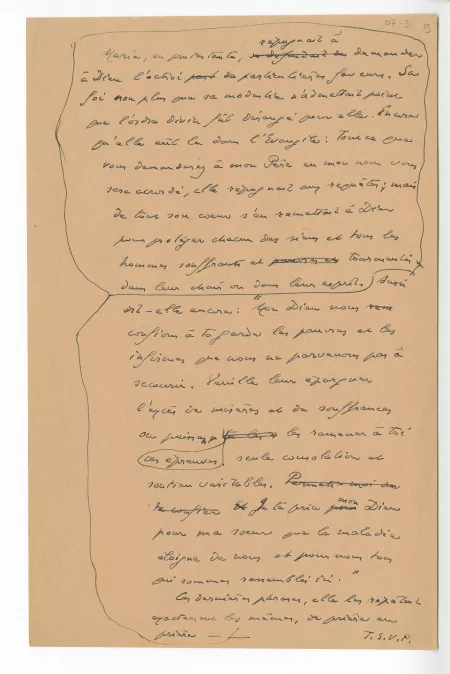 07-31 9
répugnait à
Marie, en protestante, se défendait de demander
à Dieu l'octroi de particulières faveurs. Sa
foi non plus que sa modestie n'admettait point
que l'ordre divin fût dérangé pour elle. Encore
qu'elle eût lu dans l'Evangile : Tout ce que
vous demanderez à mon Père en mon nom vous
sera accordé, elle répugnait aux requêtes ; mais
de tout son coeur s'en remettait à Dieu
pour protéger chacun des siens et tous les
hommes souffrants et pauvres et tourmentés
dans leur chair ou dans leur esprit. Aussi
dit-elle encore : "Mon Dieu nous
confions à ta garde les pauvres et les
infirmes que nous ne parvenons pas à
secourir. Veuille leur épargner
l'excès de misères et de souffrances
ou puissent les ramener à toi
ces épreuves, seule consolation et
soutien véritables. Permets-moi de
te confier Je te prie mon Dieu
pour ma soeur que la maladie
éloigne de nous et pour nous tous
qui sommes rassemblés ici."
Ces dernières phrases, elle les répétait
exactement les mêmes, de prière en
prière
T.S.V.P.